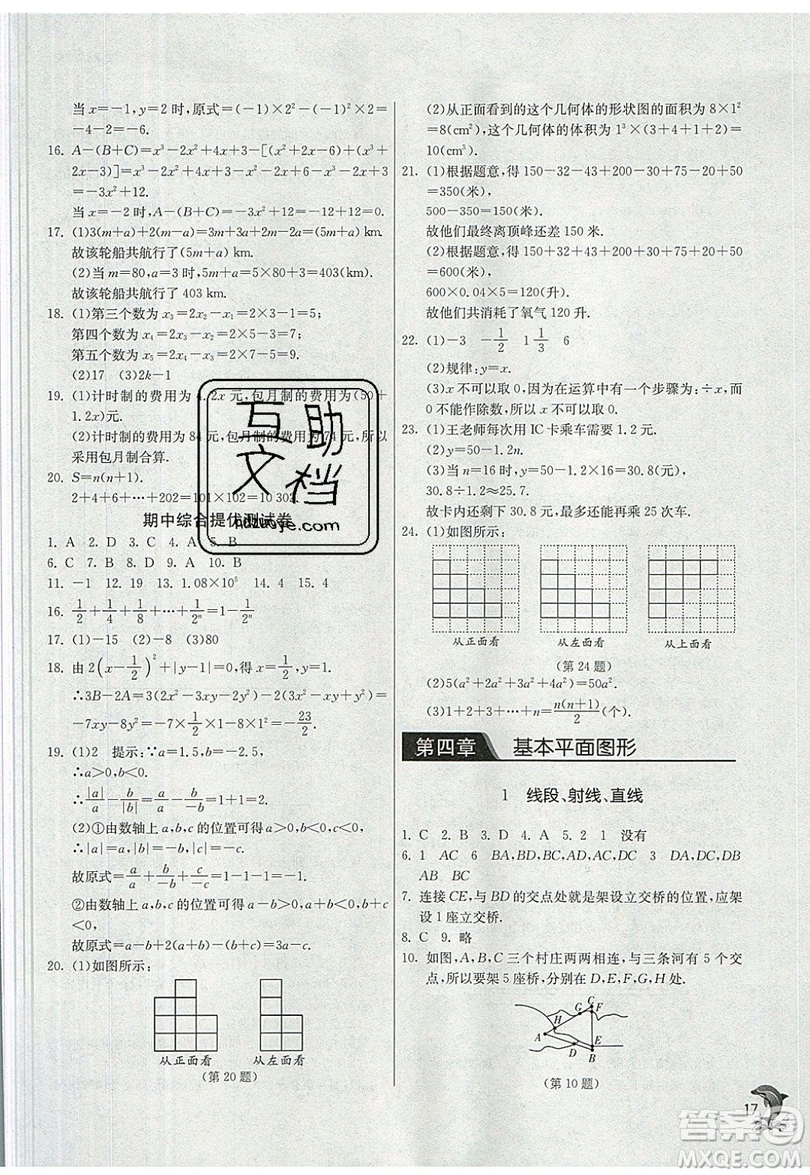 当x=-1,y=2时,原式=(-1)×2²-(-1)×2=
-4-2=-6.
16. A-(B+C)=x³-2x²+4x+3-[(x²+
2x-3)]=x³-2x²+4x+3-x²-2x-2x+3
=x³-3x²+12.
当x=-2时,A-(B+C)=-3x²+12=0.
17. (1)3(m+a)+2(m-a)=(5m+a) km.
故该轮船共航行了(5m+a) km.
(2)当m=80,a=3时,5m+a=5×80+3=403(km).
故该轮船共航行了403 km.
18. (1)第三个数为x₃=2x₂-x₁=5;
第四个数为x₄=2x₃-x₂=2×5-3=7;
第五个数为x₅=2x₄-x₃=2×7-5=9.
(2)17 (3)2k-1
19. (1)计时制的费用为4.2x元,包月制的费用为(50+
1.2x)元.
(2)计时制的费用为84元,包月制的费用为74元,所以
采用包月制合算.
20. S=n(n+1).
2+4+6+…+202=101×102=10 302.
期中综合提优测试卷
1. A 2. D 3. D 4. A 5. B
6. C 7. B 8. C 9. A 10. B
11. -1 12. 19 13. 1.08×10⁵ 14. 15 15. 4
16. 1/2+1/4+1/8+…+1/2ⁿ=1-1/2ⁿ
17. (1)-15 (2)-8 (3)80
18. 由2(x-1/2)²+|y-1|=0,得x=1/2,y=1.
∴3B-2A=3(2x²-3xy-2y²)-2(3x²-xy+y²)=
-7xy-8y²=-7×1/2×1-8×1²=-23/2.
19. (1)2 提示:∵a=1.5,b=2.5,
∴a>0,b>0,
∴|a|/a-b/|b|=a/a+b/b=1+1=2.
(2)①由数轴上a,b,c的位置可得a>0,b<0,c<0,
∴|a|=a,|b|=-b,|c|=-c.
故原式=a/a+b/-b-c/c=1-1-1=-1.
②由数轴上a,b,c的位置可得a-b>0,a-c>0,b-c
<0,
故原式=a-b+2(a-c)-(c-b)=3a-c.
20. (1)如图所示:
从正面看 从左面看
(第20题)
(2)从正面看到的这个几何体的形状图的面积为8×1²
=8(cm²),这个几何体的体积为1³×(3+4+1+2)=
10(cm³).
21. (1)根据题意,得150-32-43+200-30+75-20+50
=350(米),
500-350=150(米).
故他们最终离顶峰还差150米.
(2)根据题意,得150+32+43+200+30+75+20+50
=600(米),
600×0.04×5=120(升).
故他们共消耗了氧气120升.
22. (1)-3 -1/2 1 1/3 6
(2)规律:y=x.
(3)x不可以取0,因为在运算中有一个步骤为:÷x,而
0不能作除数,所以x不可以取0.
23. (1)王老师每次用IC卡乘车需要1.2元.
(2)y=50-1.2n.
(3)当n=16时,y=50-1.2×16=30.8.
30.8÷1.2=25.67.
故卡内还剩下30.8元,最多能再乘25次车.
24. (1)如图所示:
从正面看 从左面看 从上面看
(第24题)
(2)5(a²+2a²+3a²+4a²)=50a².
(3)1+2+3+…+n=n(n+1)/2(个).
第四章 基本平面图形
1 线段、射线、直线
1. C 2. B 3. D 4. A 5. 2 1 没有
6. 1 AC 6 AB,BC,CD,AC,BD,AD 3 DA,DC,DB
AC BC
7. 连接CE,与BD的交点处就是架设立交桥的位置,应架
设1座立交桥.
8. C 9. 略
10. 如图,A,B,C三个村庄两两相连,与三条河有5个交
点,所以要架5座桥,分别在D,E,F,G,H处.
C
G F
H
A
D E
B
(第10题)
17
互助
文档
hdzuoye.com
答案圈
MXQE.COM